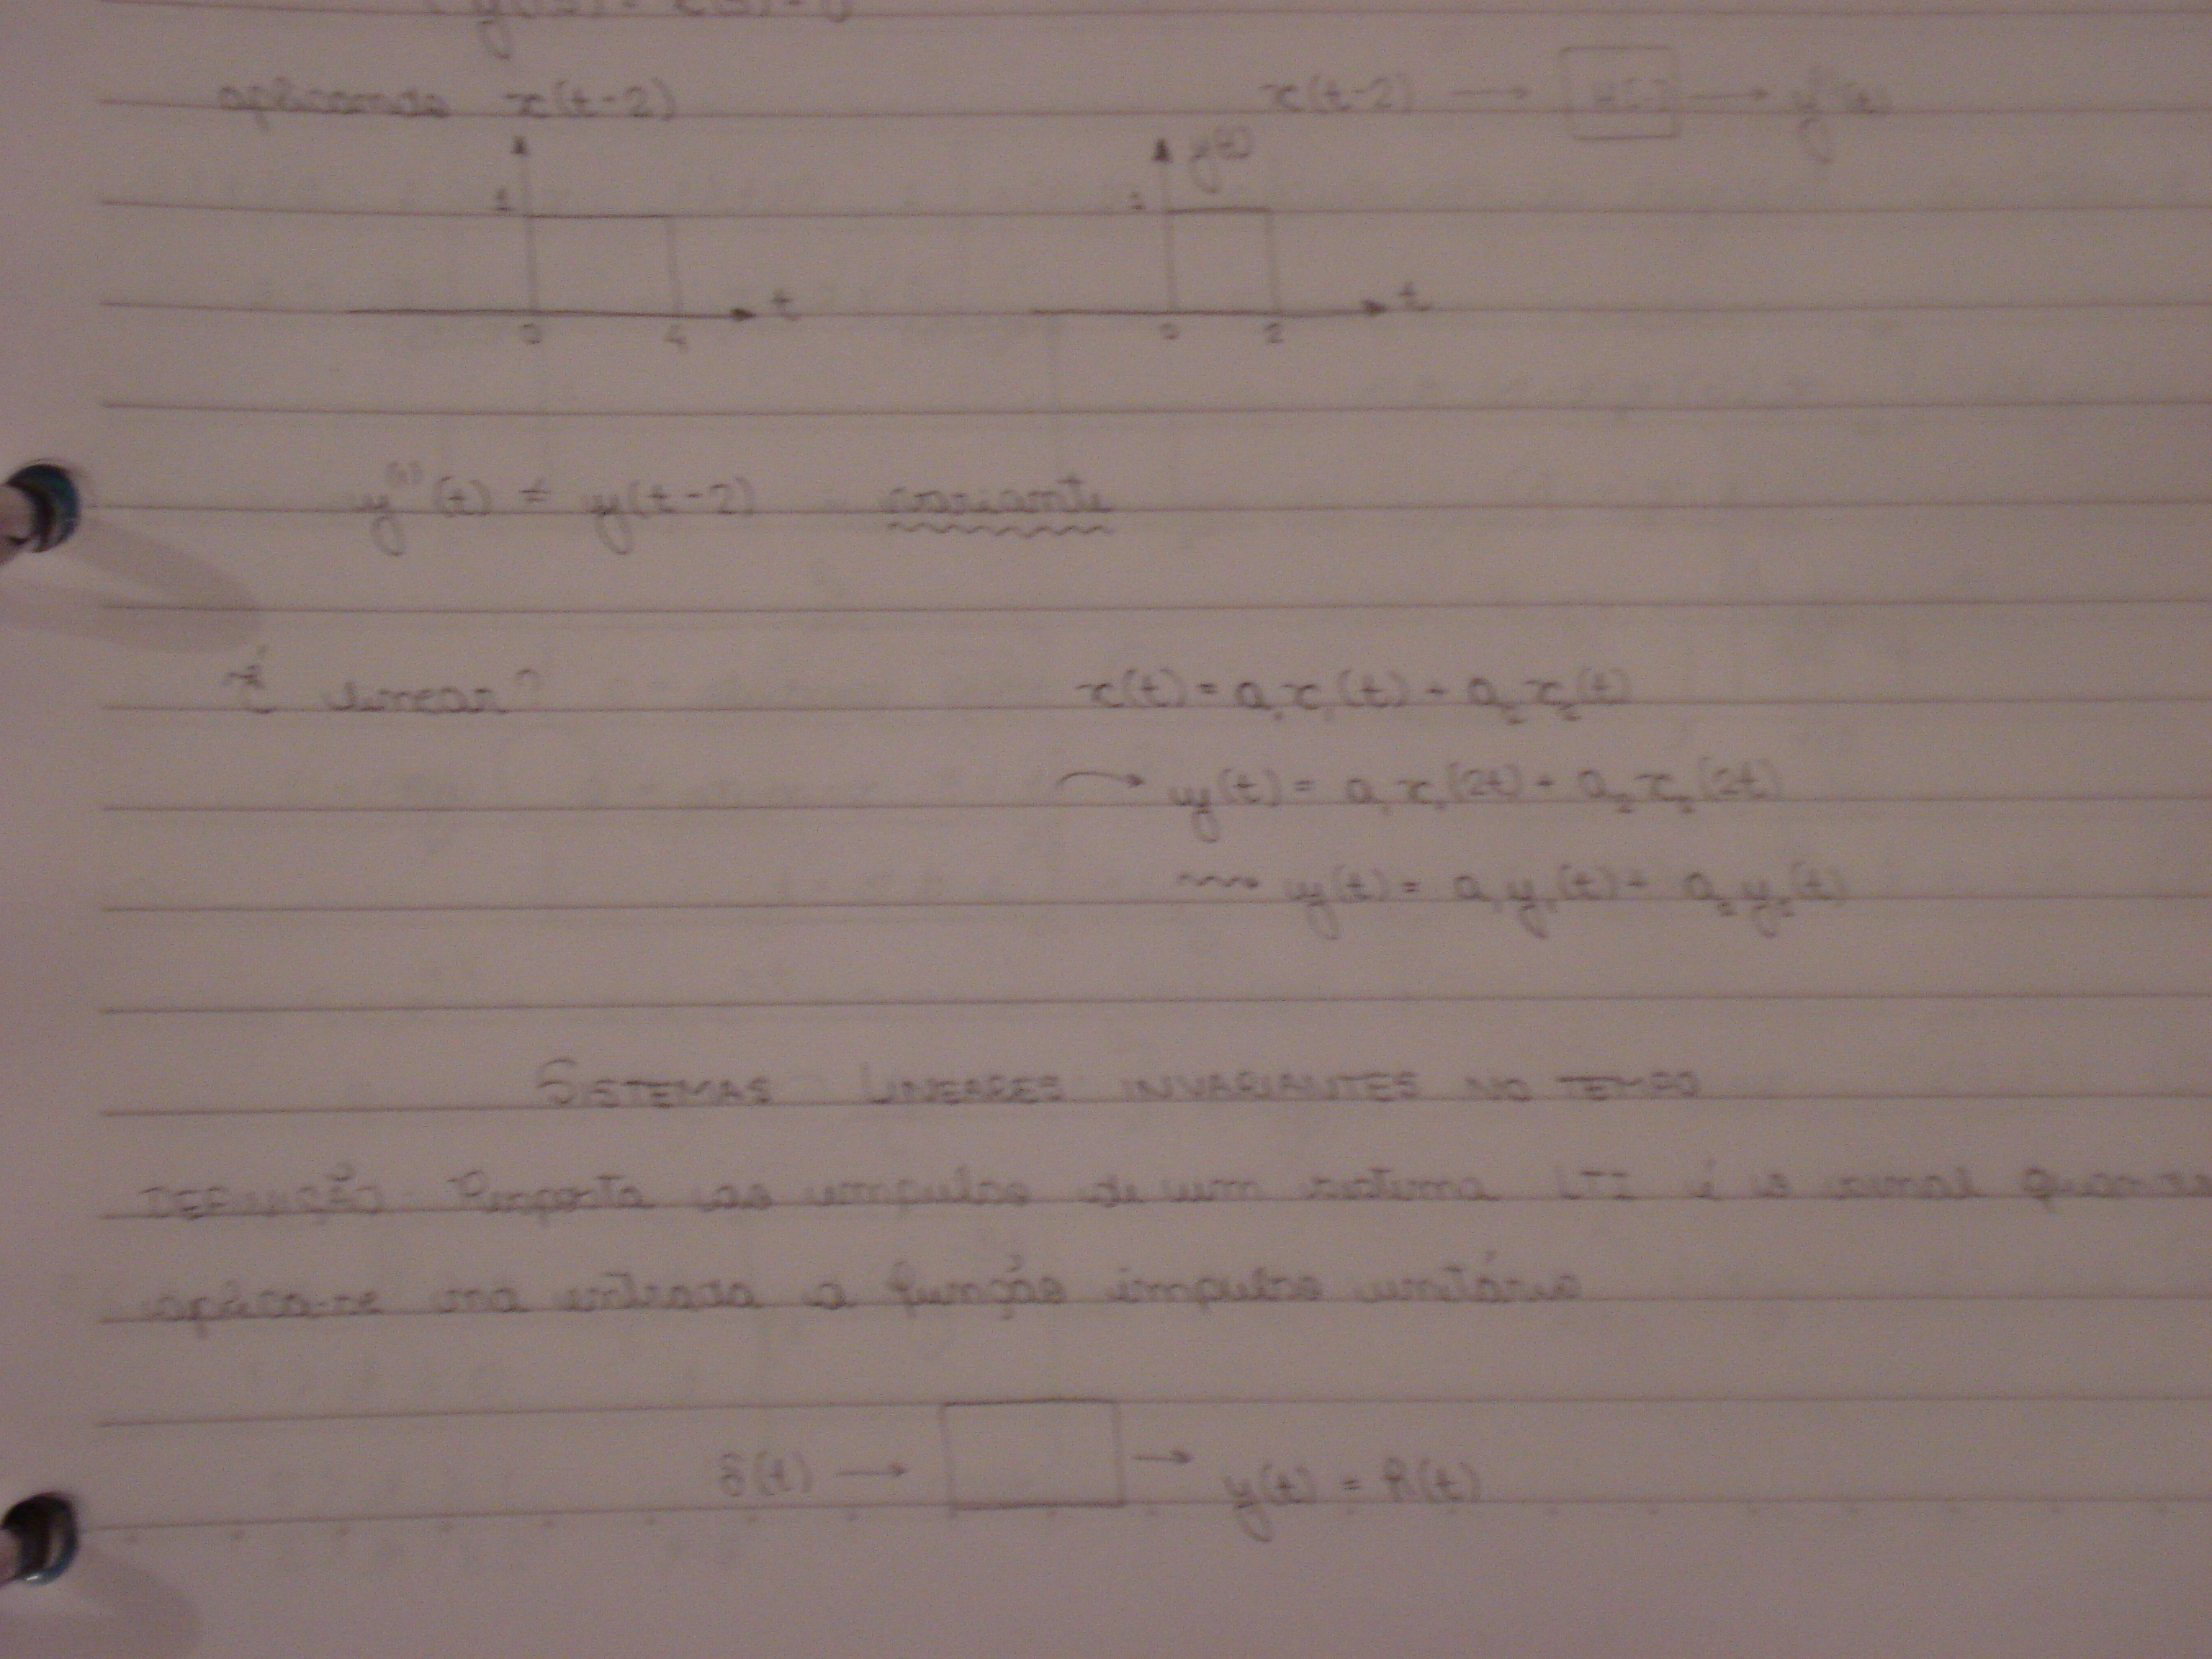 aplicando x(t-2)
x(t-2) → H[·] →
y(t)
1
1
t
t
0 4
0 2
y⁽¹⁾(t) ≠ y(t-2) variante
É linear?
x(t) = a₁x₁(t) + a₂x₂(t)
→ y(t) = a₁x₁(2t) + a₂x₂(2t)
⇝ y(t) = a₁y₁(t) + a₂y₂(t)
SISTEMAS LINEARES INVARIANTES NO TEMPO
DEFINIÇÃO: Resposta ao impulso de um sistema LTI é o sinal quando
aplica-se na entrada a função impulso unitário
δ(t) → → y(t) = h(t)